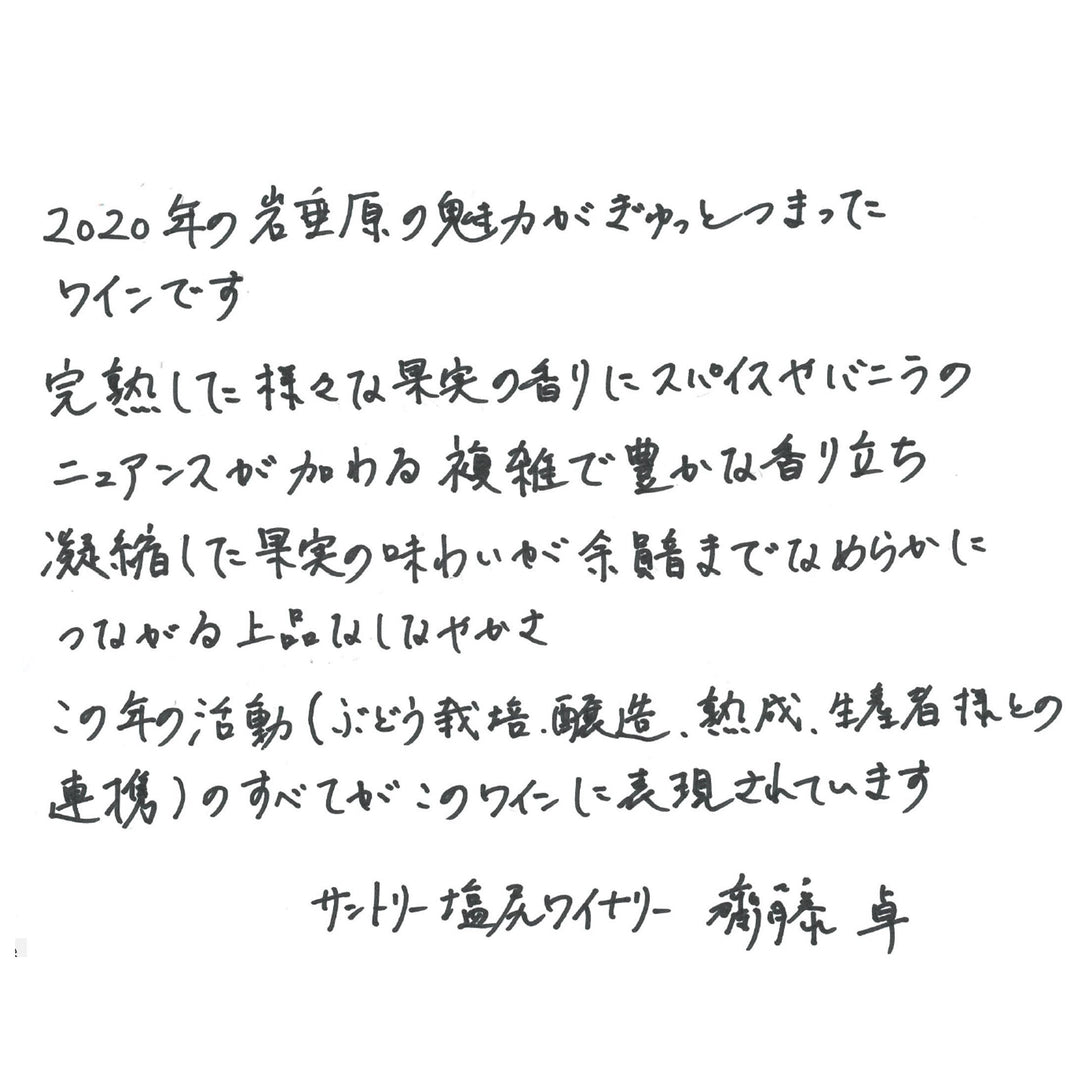 2020年の岩垂原の魅力がぎゅっとつまった
ワインです
完熟した様々な果実の香りにスパイスやバニラの
ニュアンスが加わる複雑で豊かな香り立ち
凝縮した果実の味わいが余韻までなめらかに
つながる上品なしなやかさ
この年の活動(ぶどう栽培、醸造、熟成、生産者様との
連携)のすべてがこのワインに表現されています
サントリー塩尻ワイナリー 齋藤 卓